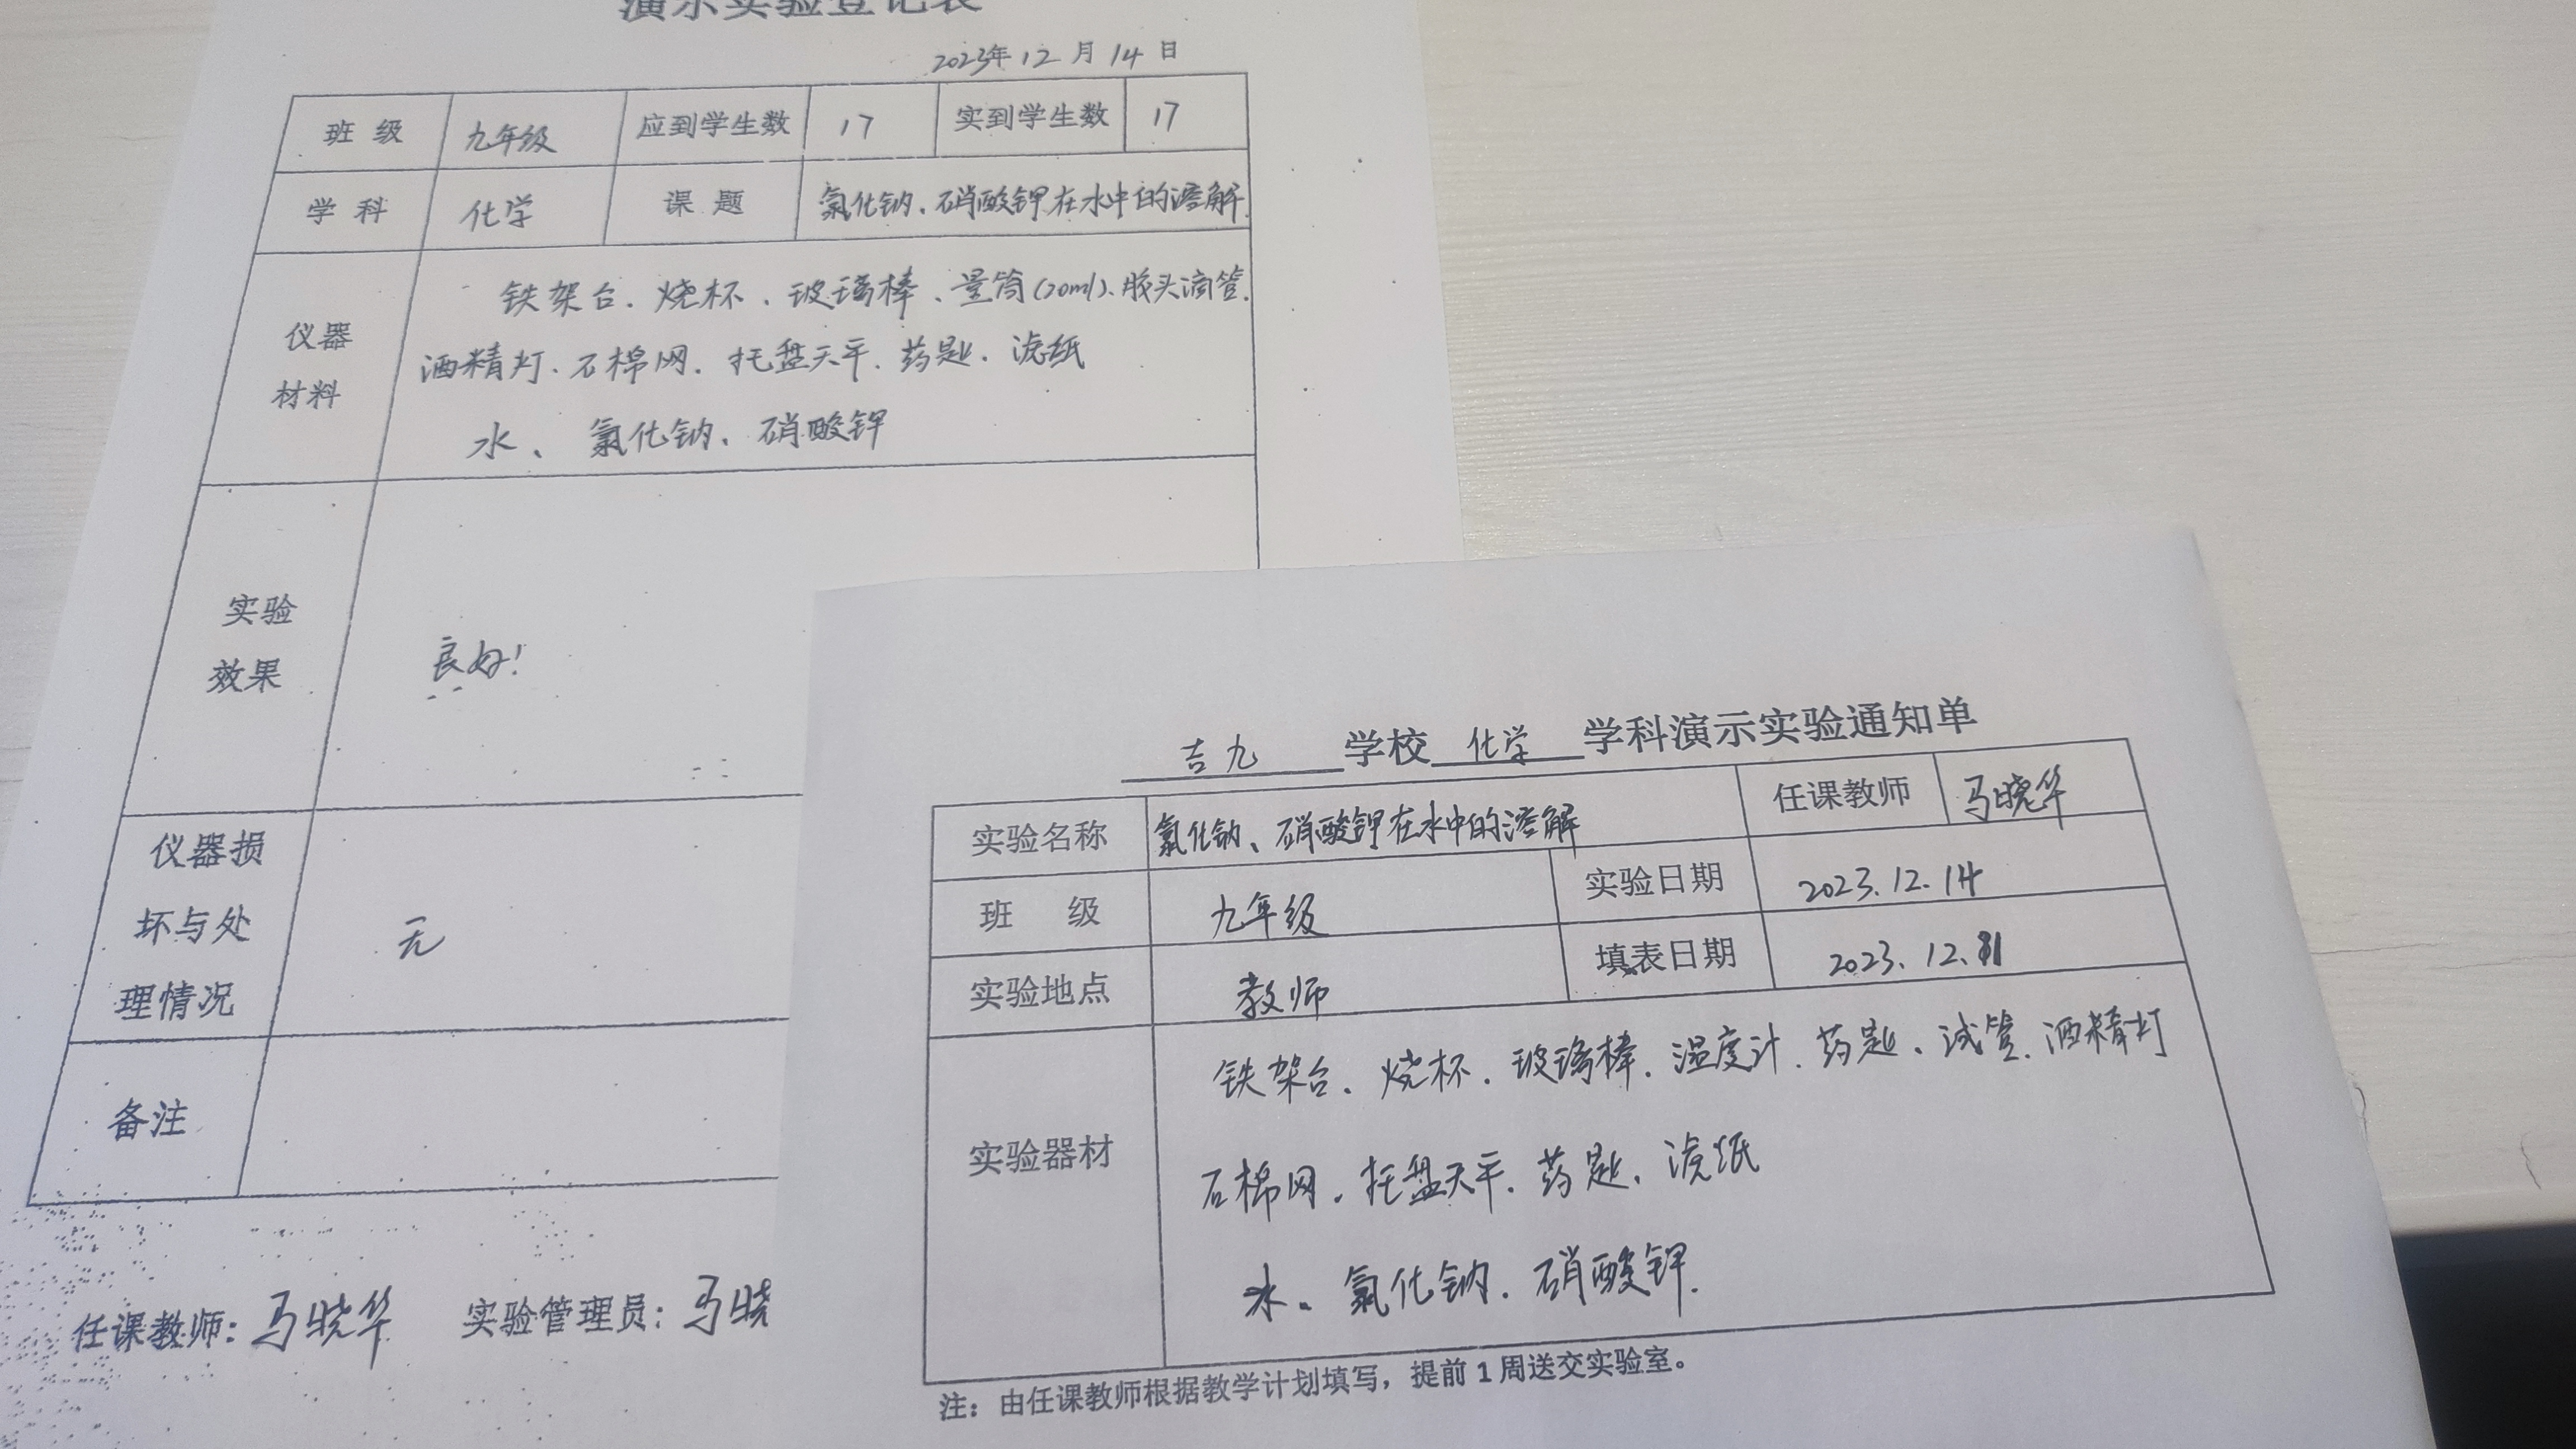 演示实验登记表
2023年 12 月 14 日
班 级 九年级 应到学生数 17 实到学生数 17
学 科 化学 课 题 氯化钠、硝酸钾在水中的溶解
仪器 材料 铁架台、烧杯、玻璃棒、量筒( ml)、胶头滴管、
酒精灯、石棉网、托盘天平、药匙、滤纸
水、氯化钠、硝酸钾
实验 效果 良好!
仪器损 坏与处 理情况 无
备注
任课教师: 马晓华 实验管理员: 马晓
吉九 学校 化学 学科演示实验通知单
实验名称 氯化钠、硝酸钾在水中的溶解 任课教师 马晓华
班 级 九年级 实验日期 2023.12.14
实验地点 教师 填表日期 2023.12.
实验器材 铁架台、烧杯、玻璃棒、温度计、药匙、试管、酒精灯
石棉网、托盘天平、药匙、滤纸
水、氯化钠、硝酸钾.
注：由任课教师根据教学计划填写，提前 1 周送交实验室。